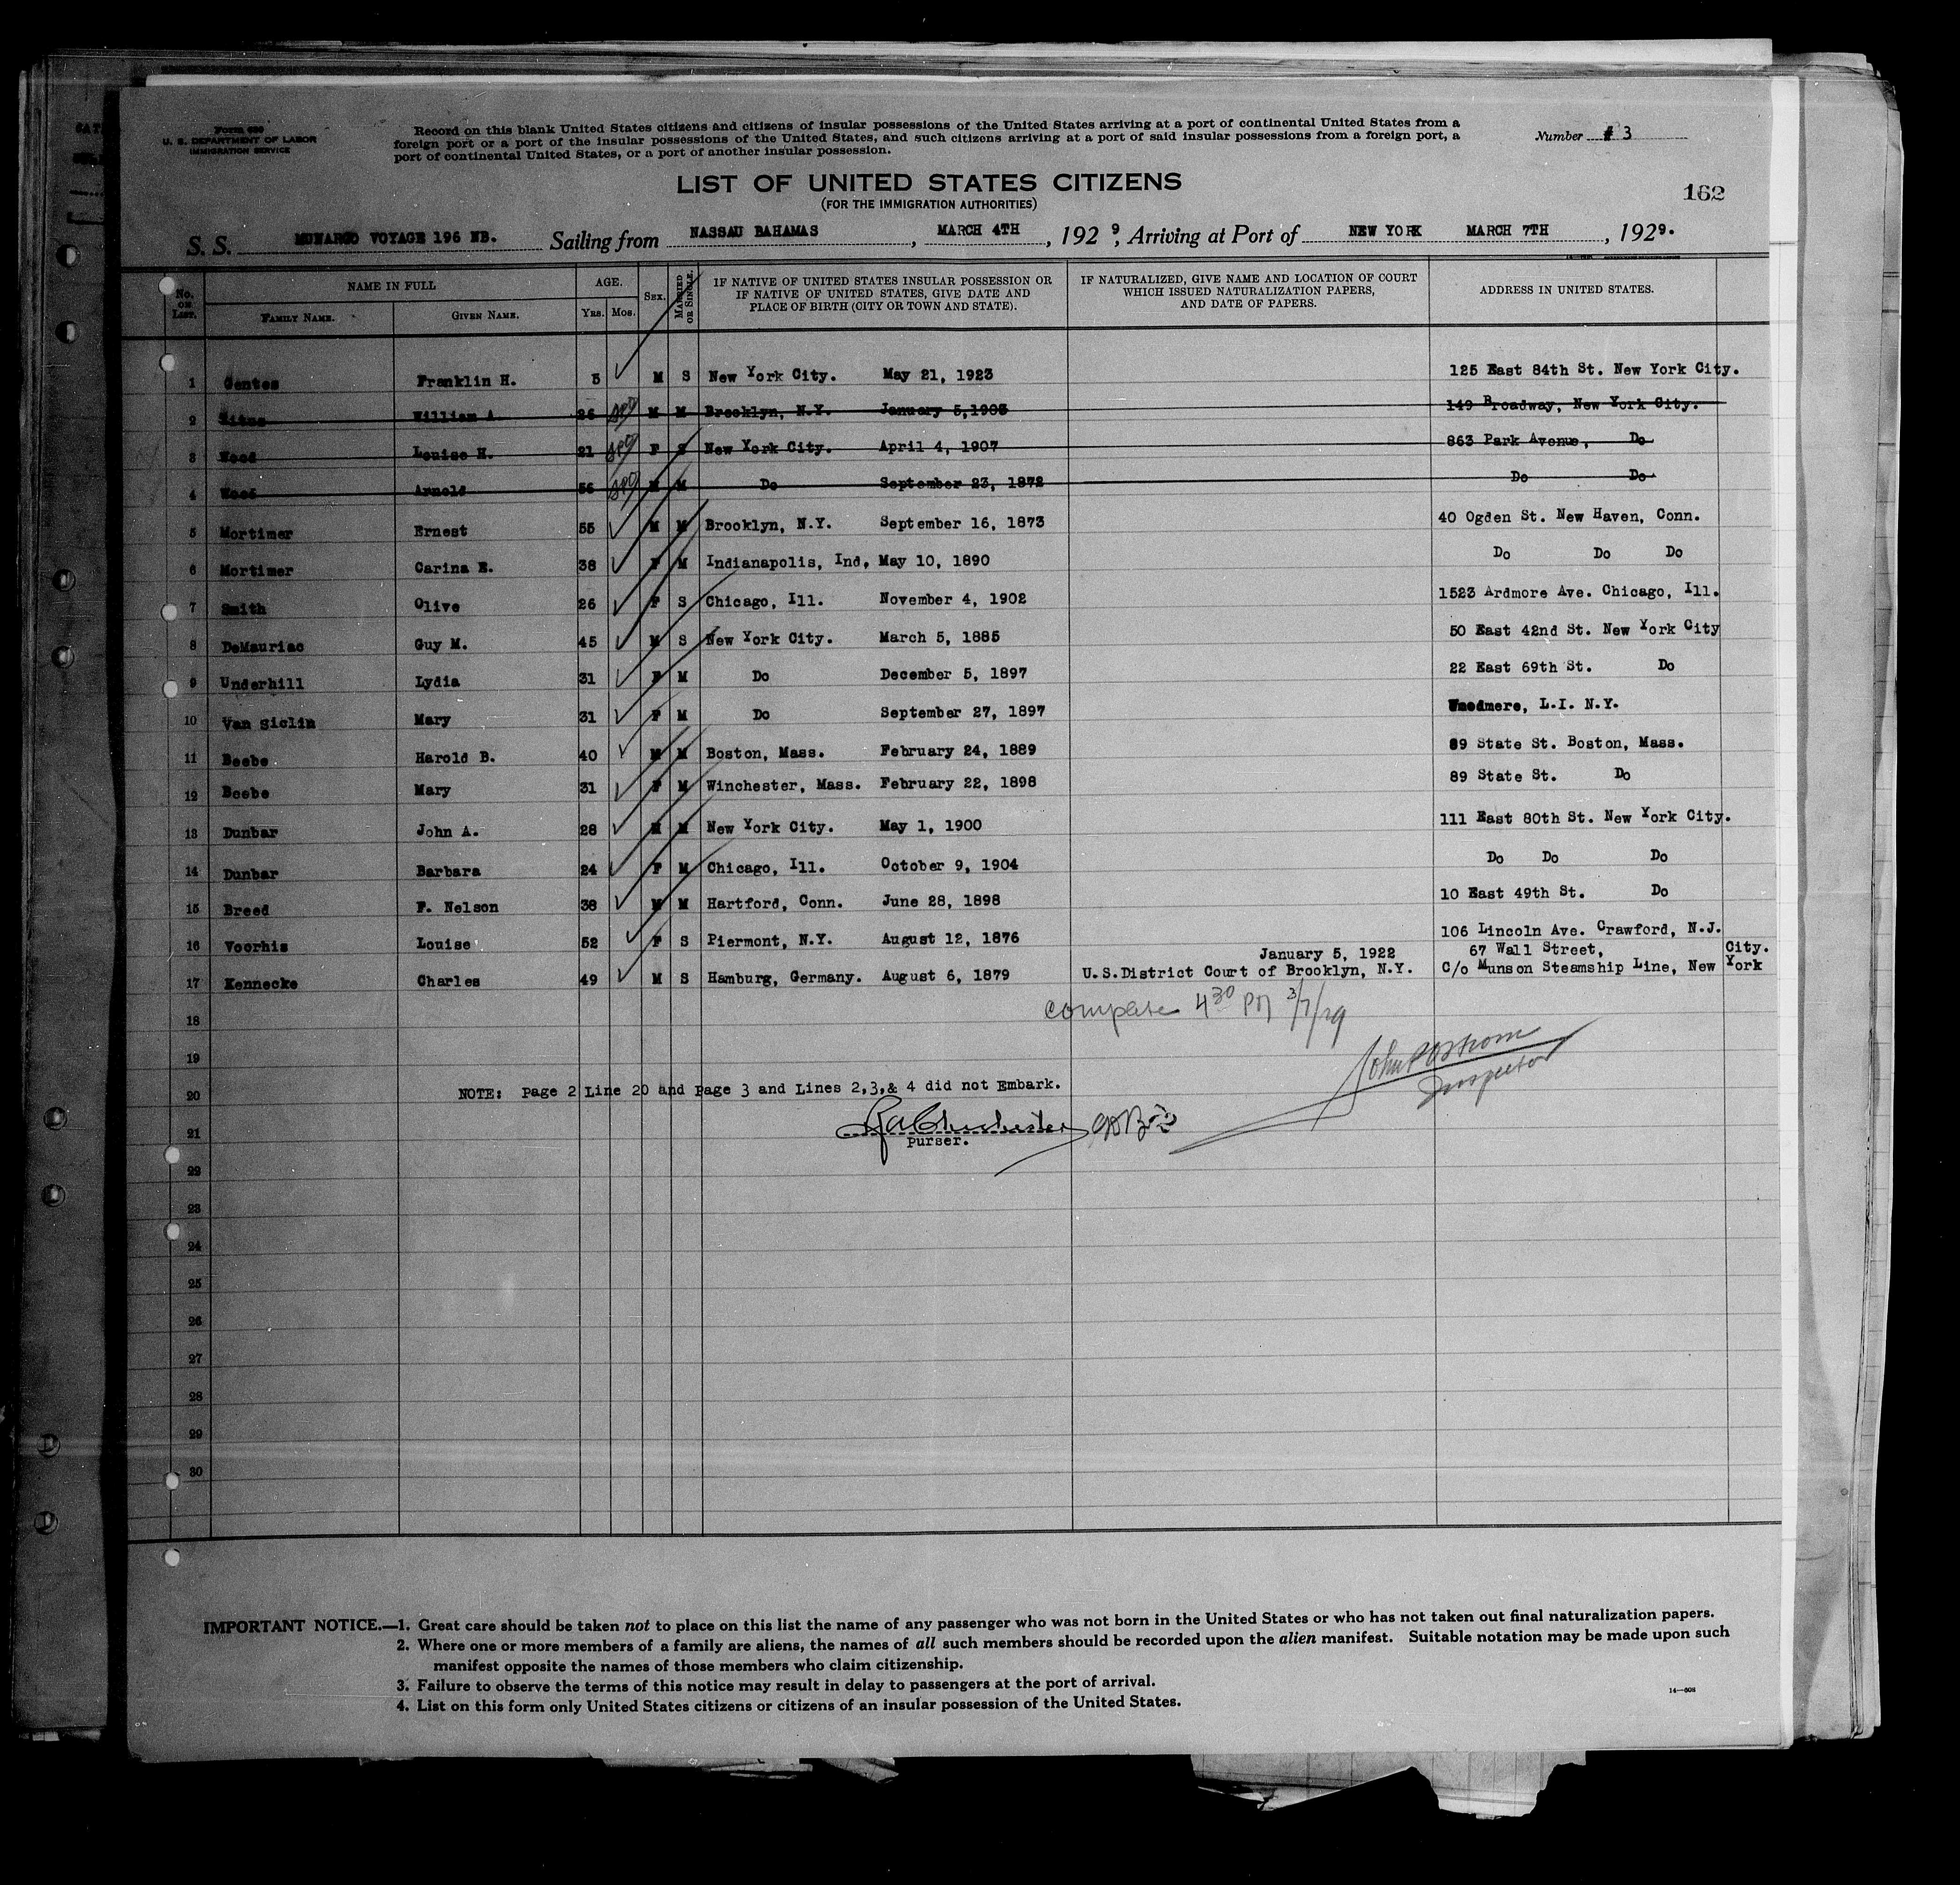 Form 630
U. S. DEPARTMENT OF LABOR
IMMIGRATION SERVICE
Record on this blank United States citizens and citizens of insular possessions of the United States arriving at a port of continental United States from a
foreign port or a port of the insular possessions of the United States, and such citizens arriving at a port of said insular possessions from a foreign port, a
port of continental United States, or a port of another insular possession.
Number # 3
LIST OF UNITED STATES CITIZENS
(FOR THE IMMIGRATION AUTHORITIES)
162
S. S. MUNARGO VOYAGE 196 NB. Sailing from NASSAU BAHAMAS, MARCH 4TH, 1929, Arriving at Port of NEW YORK MARCH 7TH, 1929.
No. on List. NAME IN FULL AGE. Sex. Married or Single. IF NATIVE OF UNITED STATES INSULAR POSSESSION OR IF NATIVE OF UNITED STATES, GIVE DATE AND PLACE OF BIRTH (CITY OR TOWN AND STATE). IF NATURALIZED, GIVE NAME AND LOCATION OF COURT WHICH ISSUED NATURALIZATION PAPERS, AND DATE OF PAPERS. ADDRESS IN UNITED STATES.
Family Name. Given Name. Yrs. Mos.
1 Gentes Franklin H. 5 M S New York City. May 21, 1923 125 East 84th St. New York City.
2 William A. 26 M M Brooklyn, N.Y. January 5, 1903 149 Broadway, New York City.
3 Wood Louise H. 21 F S New York City. April 4, 1907 863 Park Avenue, Do
4 Wood Arnold 56 M M Do September 23, 1872 Do Do
5 Mortimer Ernest 55 M M Brooklyn, N.Y. September 16, 1873 40 Ogden St. New Haven, Conn.
6 Mortimer Carina E. 38 F M Indianapolis, Ind. May 10, 1890 Do Do Do
7 Smith Olive 26 F S Chicago, Ill. November 4, 1902 1523 Ardmore Ave. Chicago, Ill.
8 DeMauriac Guy M. 45 M S New York City. March 5, 1885 50 East 42nd St. New York City
9 Underhill Lydia 31 F M Do December 5, 1897 22 East 69th St. Do
10 Van Siclin Mary 31 F M Do September 27, 1897 Woodmere, L.I. N.Y.
11 Beebe Harold B. 40 M M Boston, Mass. February 24, 1889 89 State St. Boston, Mass.
12 Beebe Mary 31 F M Winchester, Mass. February 22, 1898 89 State St. Do
13 Dunbar John A. 28 M M New York City. May 1, 1900 111 East 80th St. New York City.
14 Dunbar Barbara 24 F M Chicago, Ill. October 9, 1904 Do Do Do
15 Breed F. Nelson 38 M M Hartford, Conn. June 28, 1898 10 East 49th St. Do
16 Voorhis Louise 52 F S Piermont, N.Y. August 12, 1876 106 Lincoln Ave. Crawford, N.J.
January 5, 1922 67 Wall Street, City.
17 Kennecke Charles 49 M S Hamburg, Germany. August 6, 1879 U.S.District Court of Brooklyn, N.Y. C/o Munson Steamship Line, New York
18
complete 4 30 PM 3/7/29
19
Inspector
20 NOTE: Page 2 Line 20 and Page 3 and Lines 2,3,& 4 did not Embark.
21
Purser.
22
23
24
25
26
27
28
29
30
IMPORTANT NOTICE.—1. Great care should be taken not to place on this list the name of any passenger who was not born in the United States or who has not taken out final naturalization papers.
2. Where one or more members of a family are aliens, the names of all such members should be recorded upon the alien manifest. Suitable notation may be made upon such
manifest opposite the names of those members who claim citizenship.
3. Failure to observe the terms of this notice may result in delay to passengers at the port of arrival.
4. List on this form only United States citizens or citizens of an insular possession of the United States.
14—608